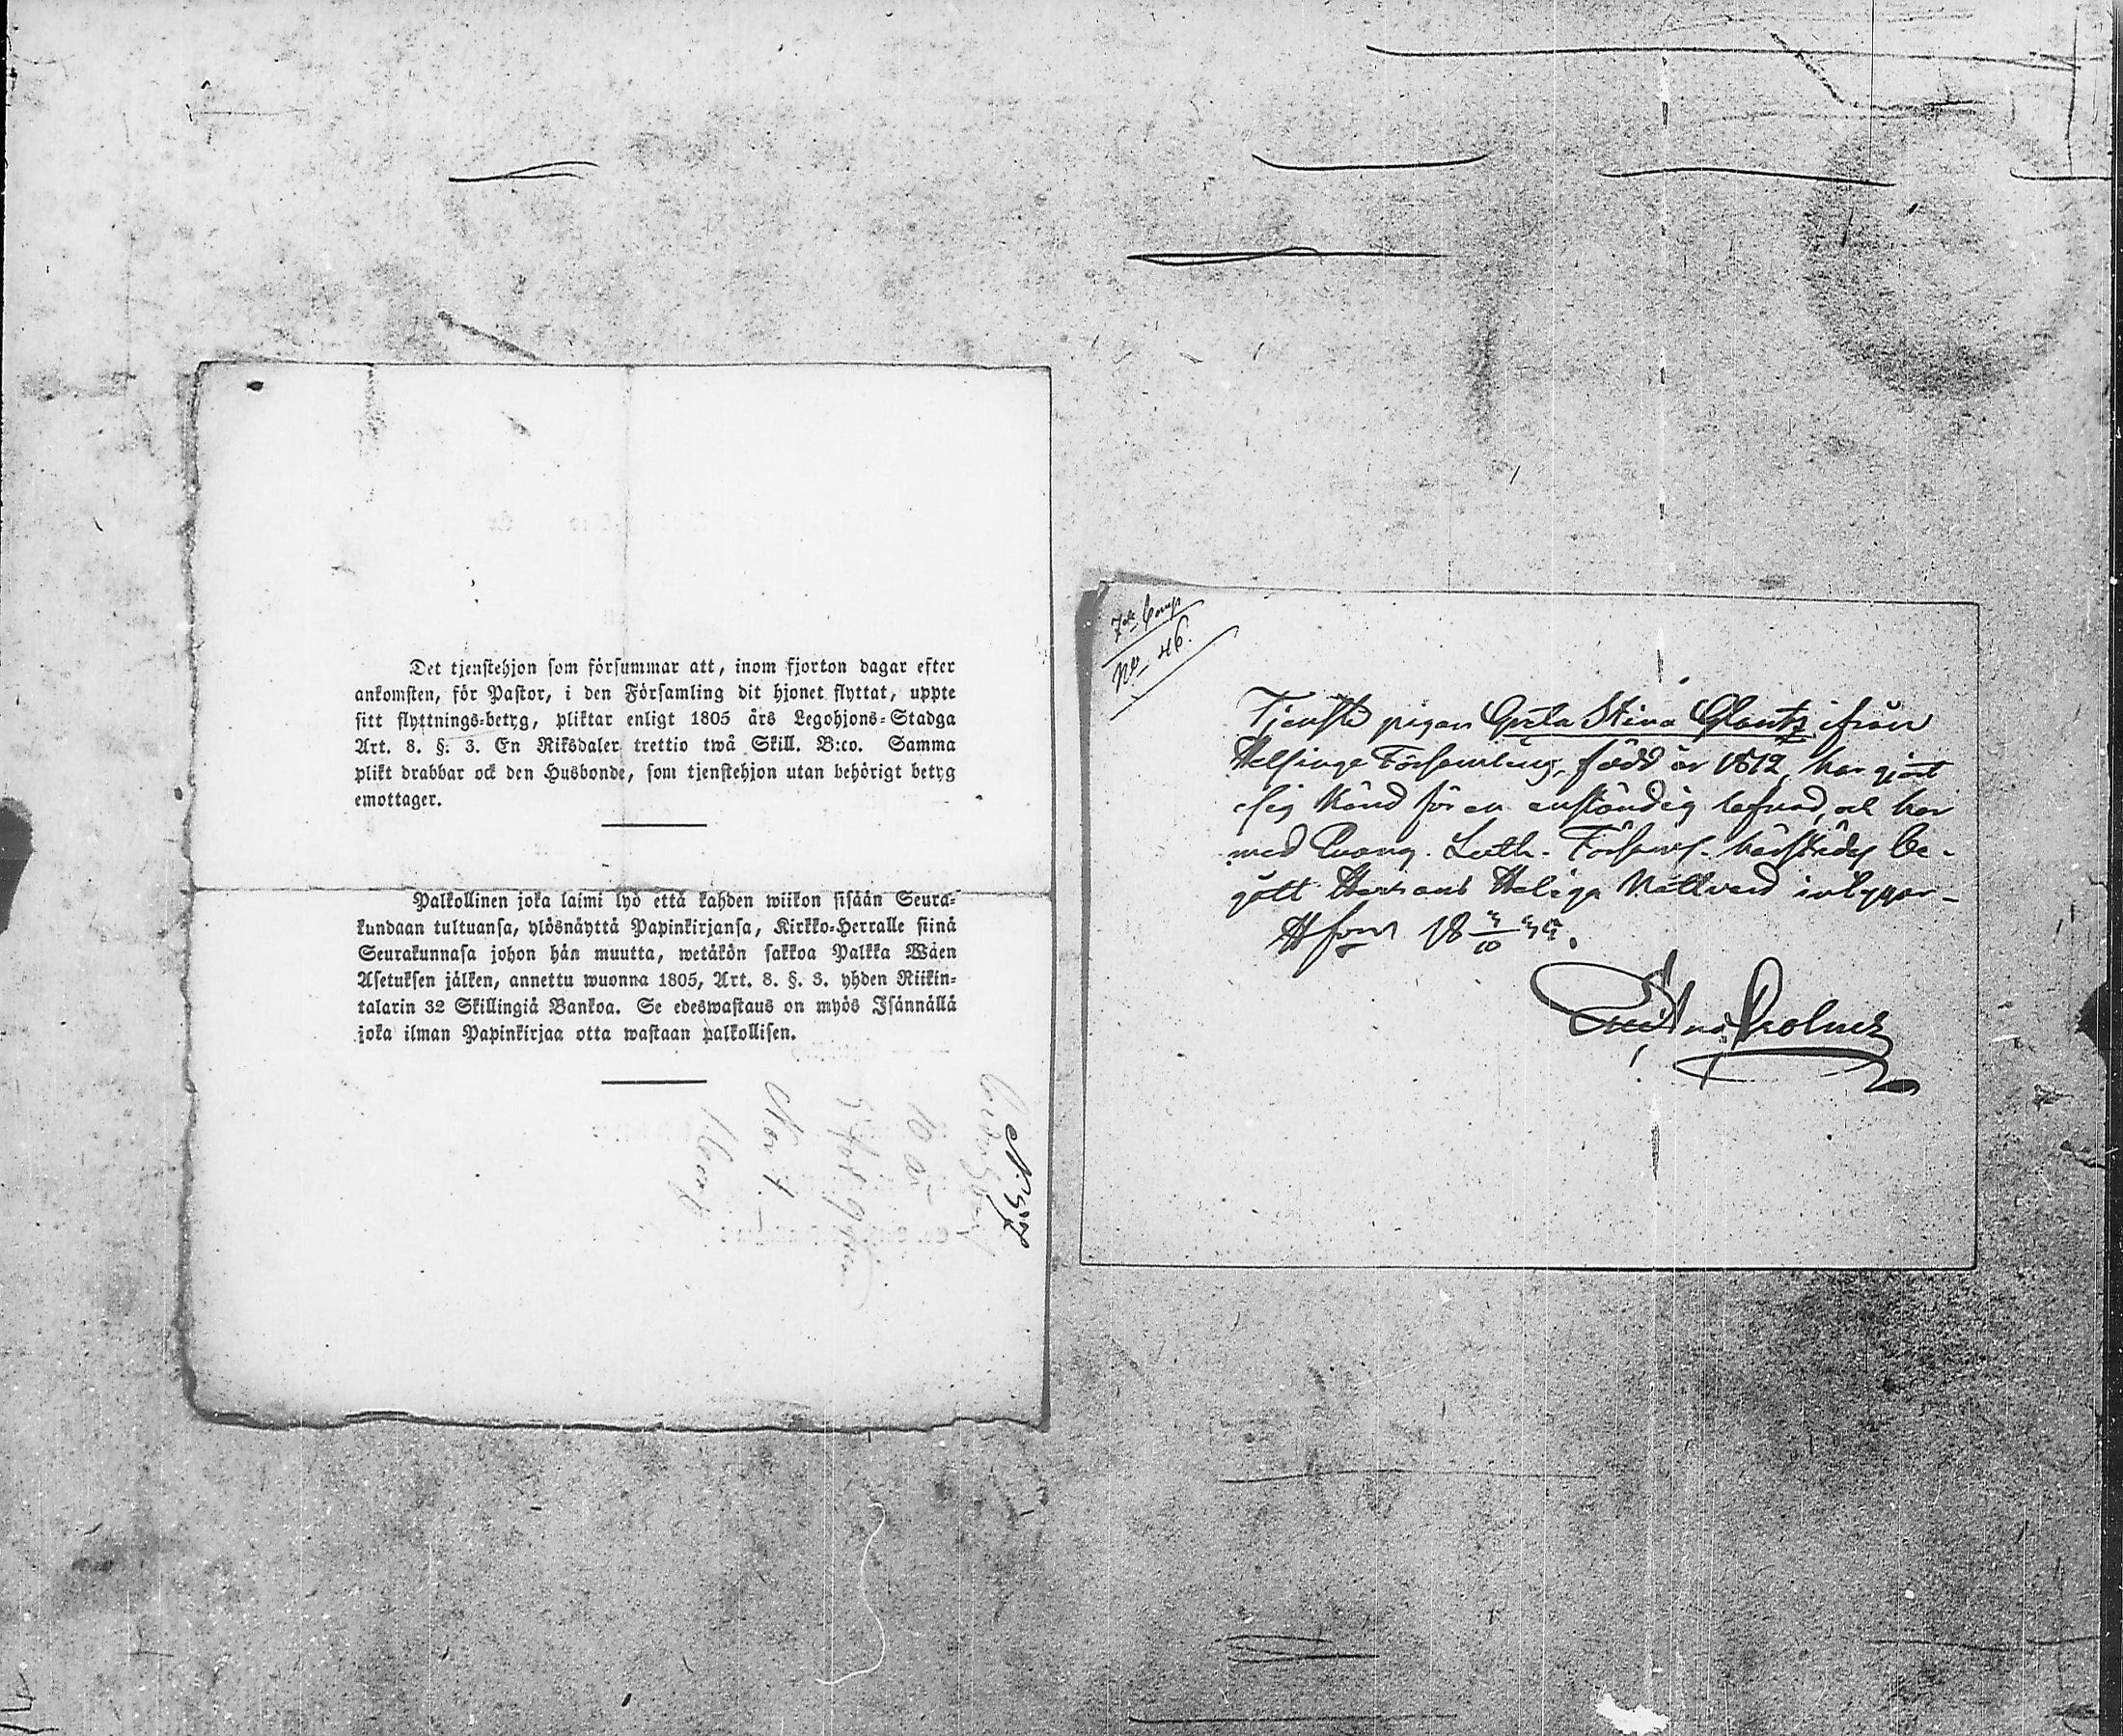 Det tjenstehjon som försummar att, inom fjorton dagar efter
ankomsten, för Pastor, i den Församling dit hjonet flyttat, uppte
sitt flyttnings-betyg, pliktar enligt 1805 års Legohjons-Stadga
Art. 8. §. 3. En Riksdaler trettio twå Skill. B:co. Samma
plikt drabbar ock den Husbonde, som tjenstehjon utan behörigt betyg
emottager.
Palkollinen joka laimi lyö että kahden wiikon sisään Seura-
kundaan tultuansa, ylösnäyttä Papinkirjansa, Kirkko-Herralle siinä
Seurakunnasa johon hän muutta, wetäkön sakkoa Palkka Wäen
Asetuksen jälken, annettu wuonna 1805, Art. 8. §. 3. yhden Riikin-
talarin 32 Skillingiä Bankoa. Se edeswastaus on myös Isännällä
joka ilman Papinkirjaa otta wastaan palkollisen.
10 år
No 7
7de Comp
No 46.
Tjenste pigan Greta Stina Glantz ifrån
Helsinge Församling, född år 1812, har gjort
sig känd för en anständig lefnad, och har
med Evang. Luth. Församl. härstädes be-
gått Herrans Heliga Nattvard
H:fors 18